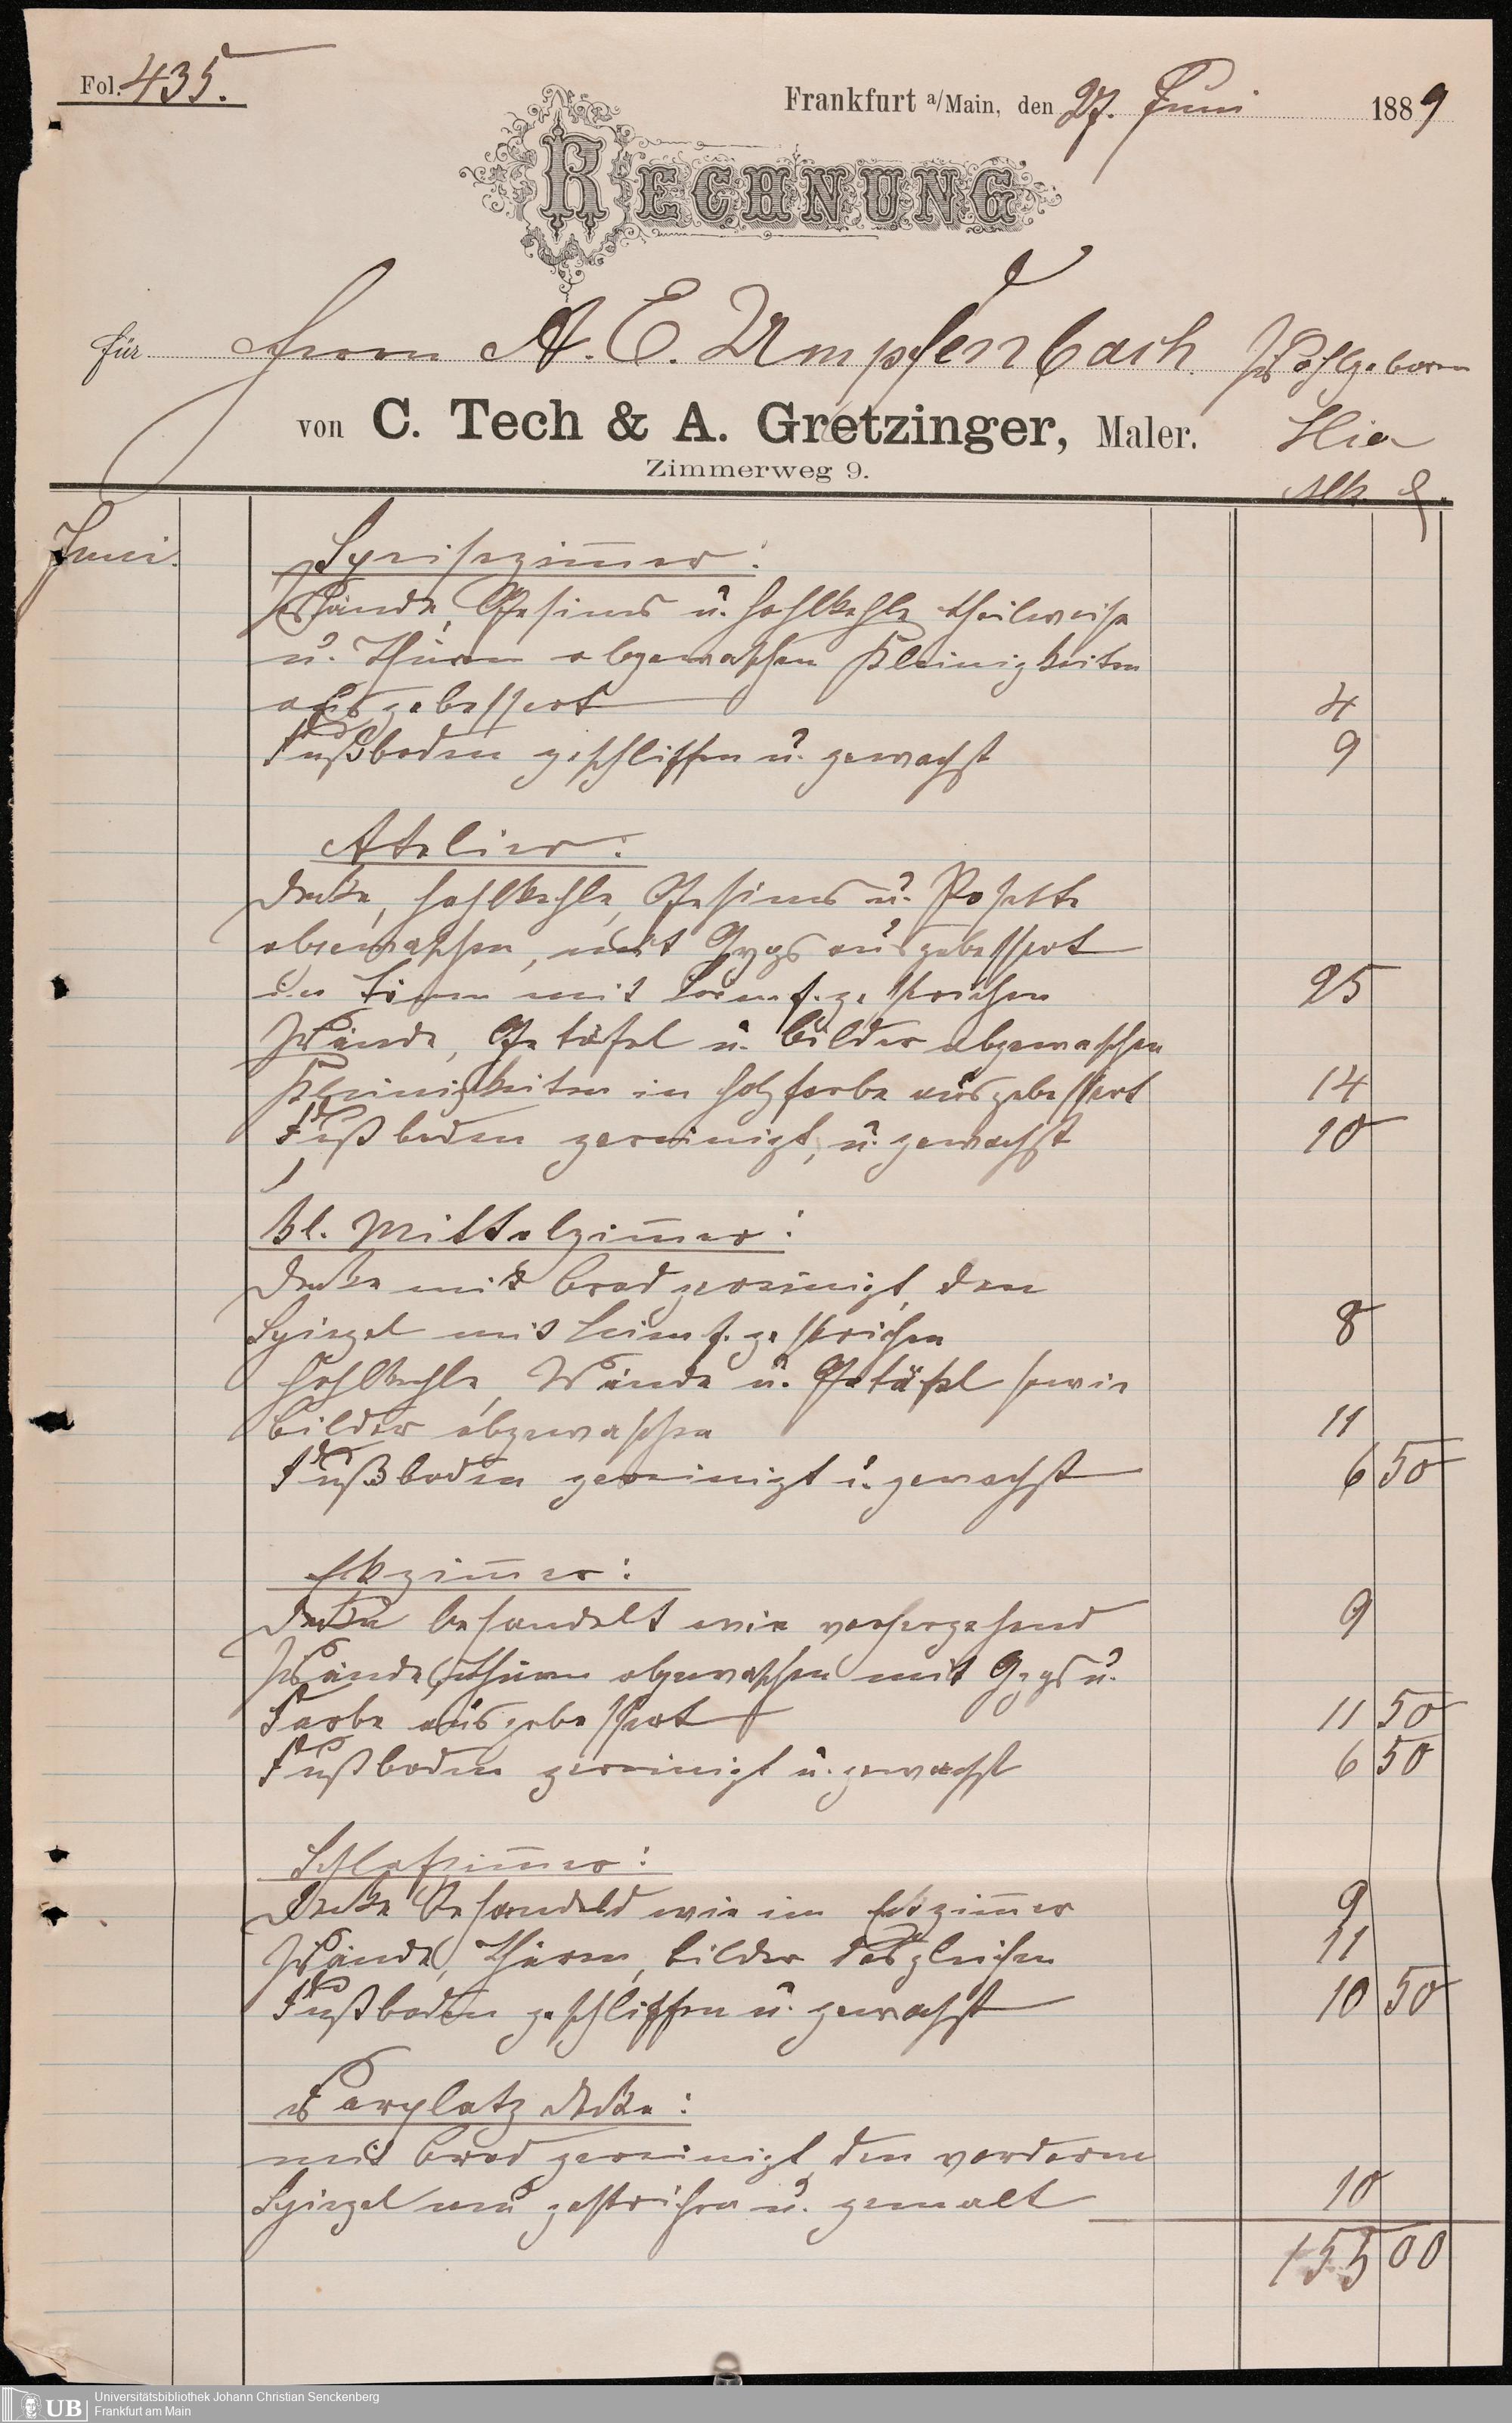 Fol. 435.
Frankfurt a/Main, den 27. Juni 1889
RECHNUNG
für Herrn A. E. Umpfenbach. Wohlgeboren
von C. Tech & A. Gretzinger, Maler. Hier
Zimmerweg 9.
Mk. ₰.
Juni. Speisezim̅er:
Wände, Gesims u. Hohlkehle theilweise
u. Thüren abgewaschen Kleinigkeiten
ausgebessert 4
Fußboden geschliffen u. gewachst 9
Atelier:
Decke, Hohlkehle, Gesims u. Rosette
abgewaschen, mit Gyps ausgebessert
mit Leimf. gestrichen 25
Wände, Getäfel u. Bilder abgewaschen
Kleinigkeiten in Holzfarbe ausgebessert 14
Fußboden gereinigt, u. gewachst 10
Kl. Mittelzim̅er:
Decke mit Brod gereinigt, den
Spiegel mit Leimf. gestrichen 8
Hohlkehle, Wände u. Getäfel sowie
Bilder abgewaschen 11
Fußboden gereinigt u. gewachst 6 50
Ekzim̅er:
Decke behandelt wie vorhergehend 9
Wände, Thüren abgewaschen mit Gyps u.
Farbe ausgebessert 11 50
Fußboden gereinigt u. gewachst 6 50
Schlafzim̅er:
Decke behandeld wie im Ekzim̅er 9
Wände, Thüren, Bilder desgleichen 11
Fußboden geschliffen u. gewachst 10 50
Vorplatz Decke:
mit Brod gereinigt den vorderen
Spiegel neu gestrichen u. gemalt 10
155 00
UB
Universitätsbibliothek Johann Christian Senckenberg
Frankfurt am Main